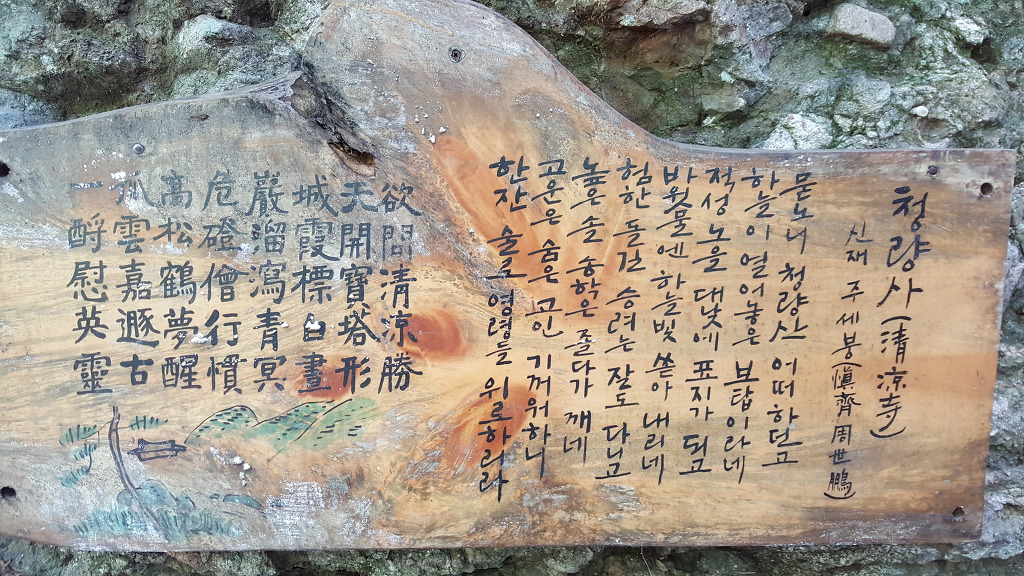 청량사(淸凉寺)
신재 주세붕(愼齊 周世鵬)
묻노니 청량산 어떠하던고
하늘이 열어놓은 보탑이라네
적성 노을 대낮에 표지가 되고
바윗물엔 하늘빛 쏟아 내리네
험한 돌길 승려는 잘도 다니고
높은 솔 송학은 졸다가 깨네
고운은 숨은 고인 기꺼워하니
한잔 술로 영령들 위로하리라
欲問清凉勝
天開寶塔形
城霞標白晝
巖溜瀉青冥
危磴僧行慣
高松鶴夢醒
孤雲嘉遯古
一酹慰英靈